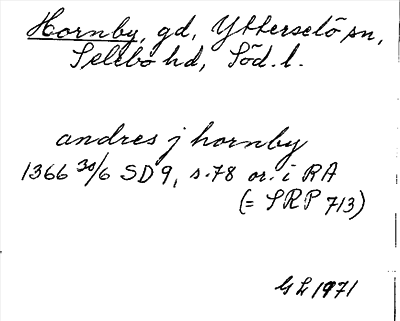 Hornby, gd, Ytterselö sn,
Selebo hd, Söd. l.
andres j hornby
1366 30/6 SD 9, s. 78 or. i RA
(= SRP 713)
GL 1971